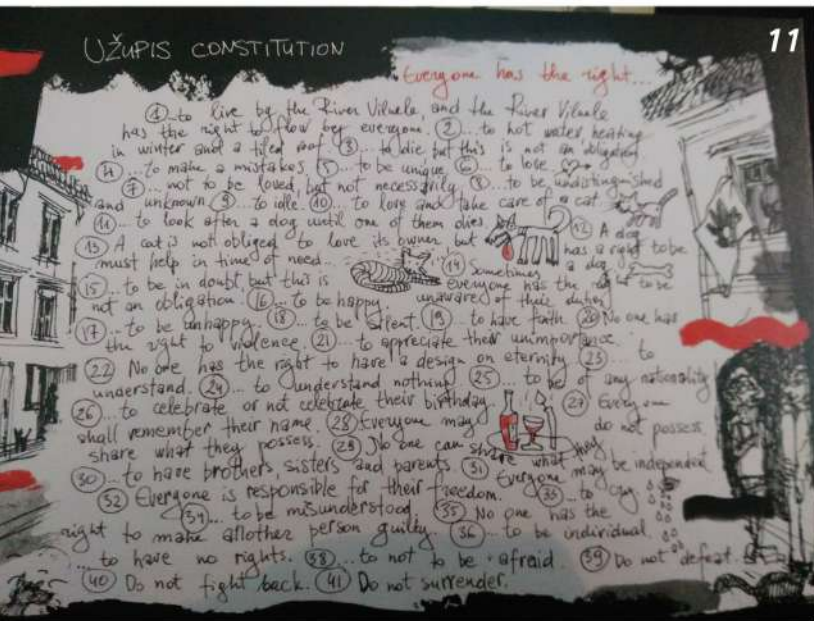 11
UŽUPIS CONSTITUTION
Everyone has the right...
1 ...to live by the River Vilnele, and the River Vilnele
has the right to flow by everyone. 2 ... to hot water, heating
in winter and a tiled roof 3 ... to die, but this is not an obligation.
4 ... to make a mistakes. 5 ... to be unique. 6 ... to love.
7 ... not to be loved, but not necessarily. 8 ... to be undistinguished
and unknown. 9 ... to idle. 10 ... to love and take care of a cat.
11 ... to look after a dog until one of them dies. 12 A dog
has a right to be
a dog.
13 A cat is not obliged to love its owner but
must help in time of need... 14 Sometimes
everyone has the right to be
unaware of their duties
15 ... to be in doubt but this is
not an obligation. 16 ... to be happy.
17 ... to be unhappy. 18 ... to be silent. 19 ... to have faith. 20 No one has
the right to violence. 21 ... to appreciate their unimportance.
22 No one has the right to have a design on eternity. 23 ... to
understand. 24 ... to understand nothing. 25 ... to be of any nationality
26 ... to celebrate or not celebrate their birthday. 27 Everyone
shall remember their name. 28 Everyone may
share what they possess. 29 No one can share what they
do not possess.
30 ... to have brothers, sisters and parents. 31 Everyone may be independent.
32 Everyone is responsible for their freedom. 33 ... to cry.
34 ... to be misunderstood. 35 No one has the
right to make another person guilty. 36 ... to be individual.
... to have no rights. 38 ... to not to be afraid. 39 Do not defeat.
40 Do not fight back. 41 Do not surrender.